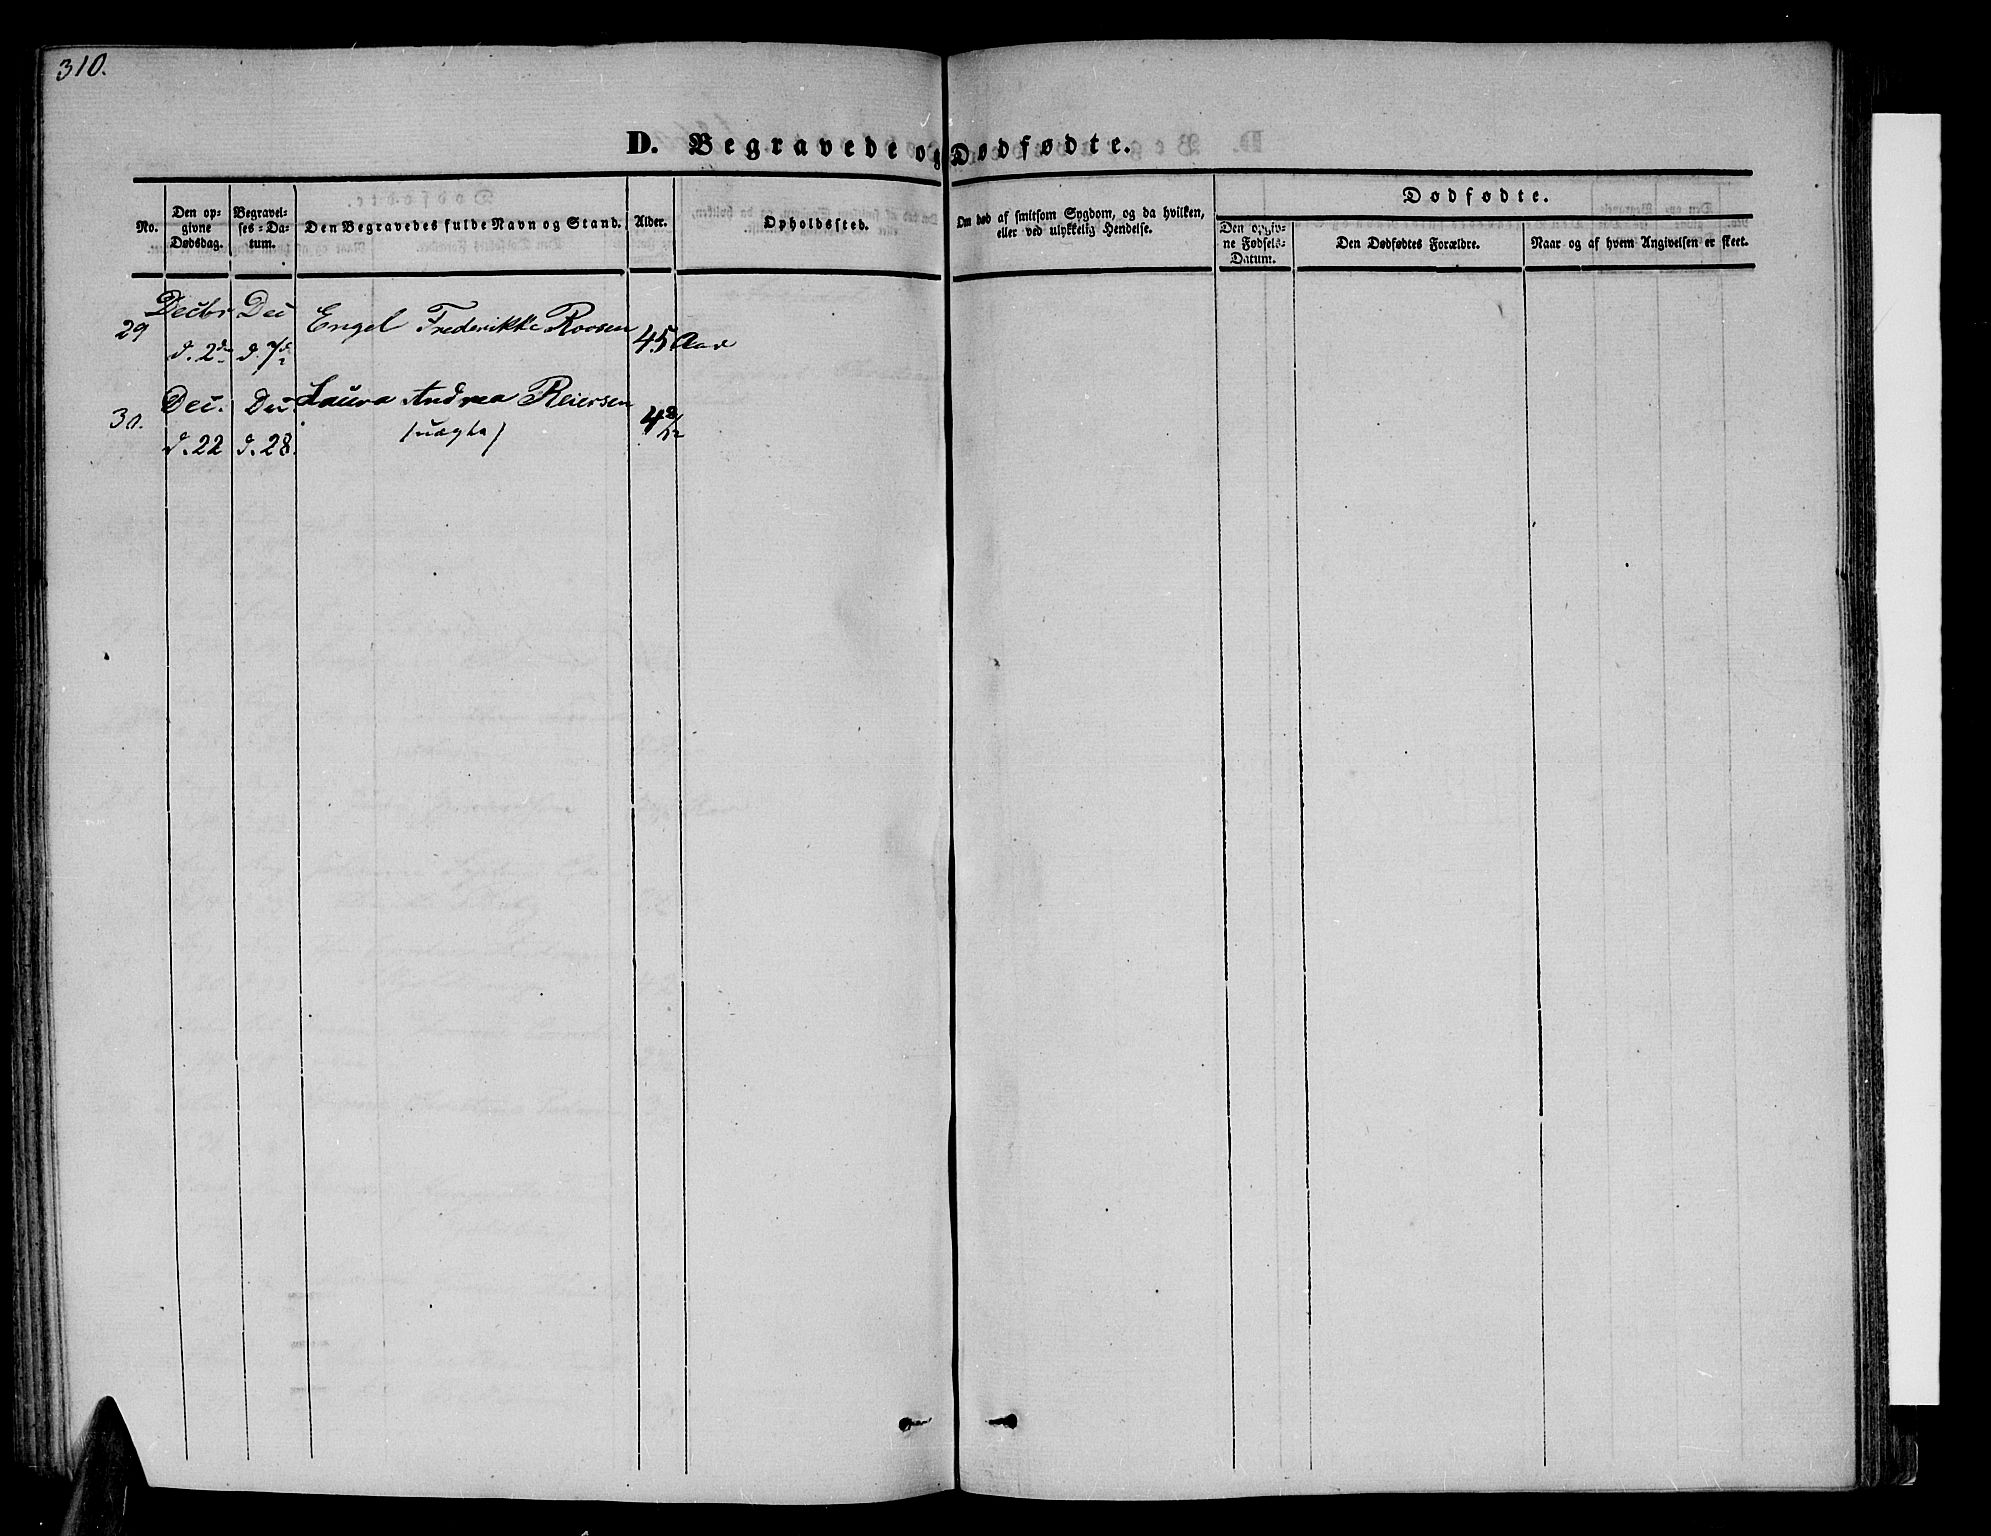 310.
D. Begravede og Dødfødte.
No.
Den opgivne Dødsdag.
Begravelses-Datum.
Den Begravedes fulde Navn og Stand.
Alder.
Opholdssted.
Om død af smitsom Sygdom, og da hvilken,
eller ved ulykkelig Hendelse.
Dødfødte.
Den opgivne Fødsels-Datum.
Den Dødfødtes Forældre.
Naar og af hvem Angivelsen er skeet.
29 Decbr Dec Engel Frederikke Roosen 45 Aar
d. 2den d. 7d
30. Dec. Dec. Laura Andrea Reiersen 4 8/12
d. 22 d. 28. /uægta/